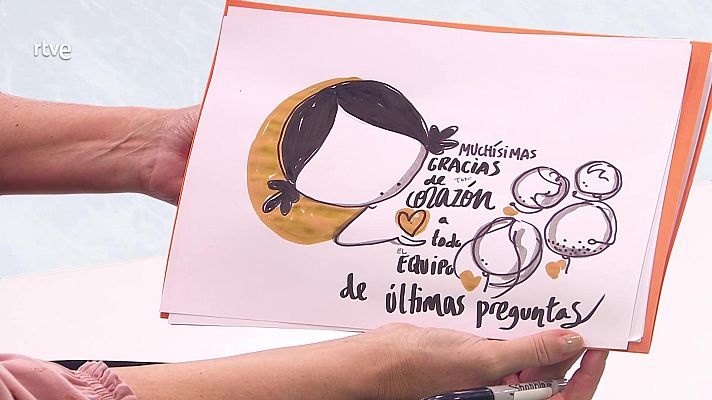 rtve
MUCHÍSIMAS
GRACIAS
de TODO
CORAZÓN
a
todo
EL
EQUIPO
de últimas preguntas
Sharpie